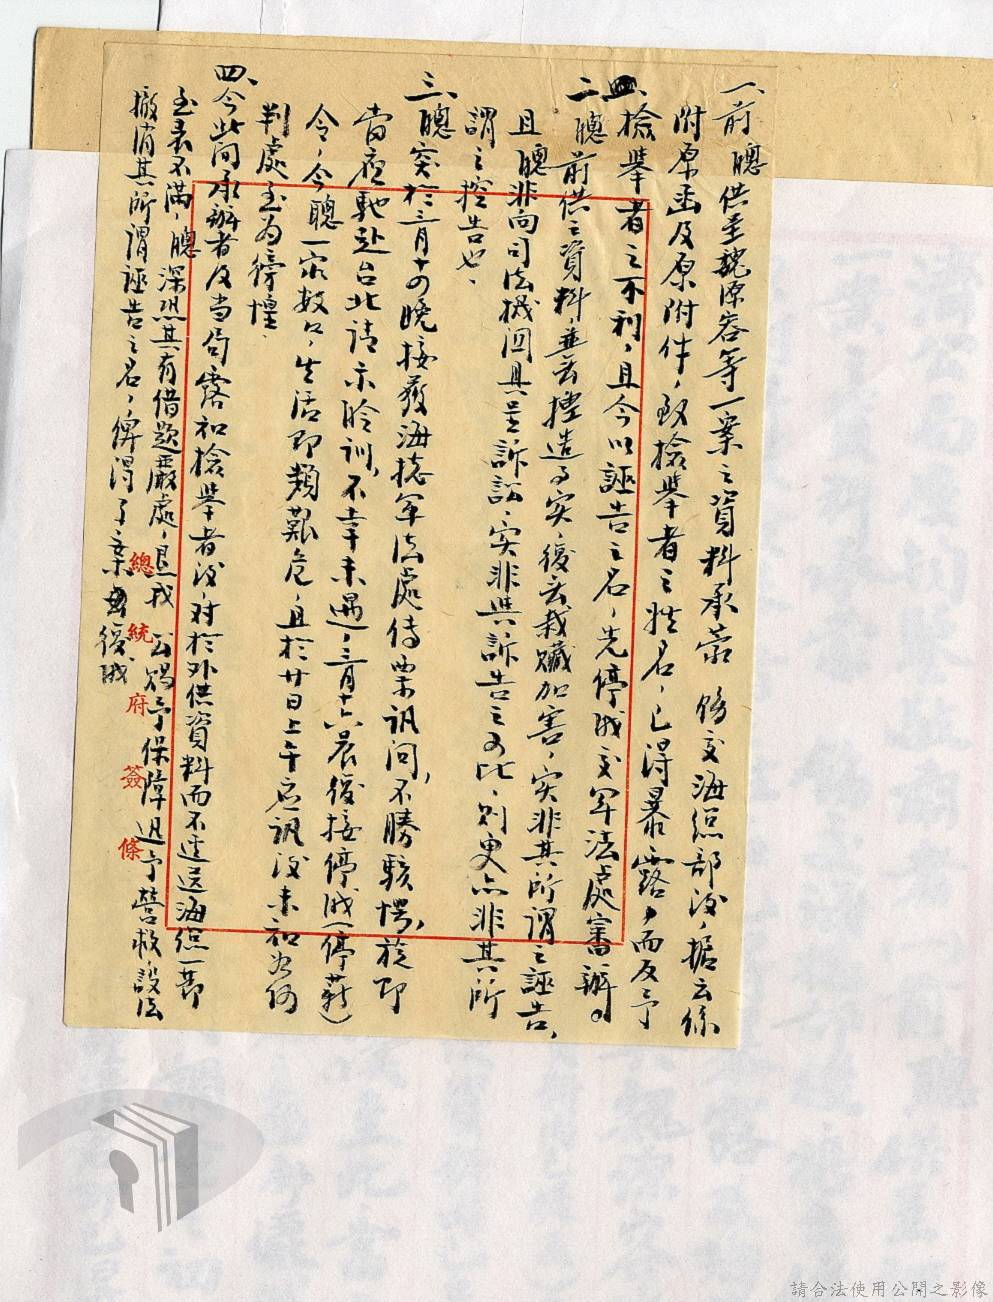 一、前聰供呈魏源容等一案之資料承蒙 飭交海總部後，據云係
附原函及原附件，致檢舉者之姓名，已得暴露，而反予
檢舉者之不利，且今以誣告之名，先停職交軍法處審辦。
二、聰前供之資料並無捏造事實，復無栽贓加害，實非其所謂之誣告，
且聰非向司法機回具呈訴訟，實非與訴告之可比，則更亦非其所
謂之控告也、
三、聰突於三月十四晚接獲海總軍法處傳票訊問，不勝駭愕，旋即
當夜馳赴台北請示聆訓，不幸未遇，三月十六晨復接停職（停薪）
令，今聰一家數口，生活即類艱危，且於廿日上午應訊後未知如何
判處至為徬惶，
四、今此間承辦者及当局露知檢舉者後，对於外供資料而不逕送海總一節
至表不滿，聰深恐其有借題嚴處，懇我 公賜予保障迅予營救，設法
撤消其所謂誣告之名，俾得了案 復職
總統府簽條
請合法使用公開之影像